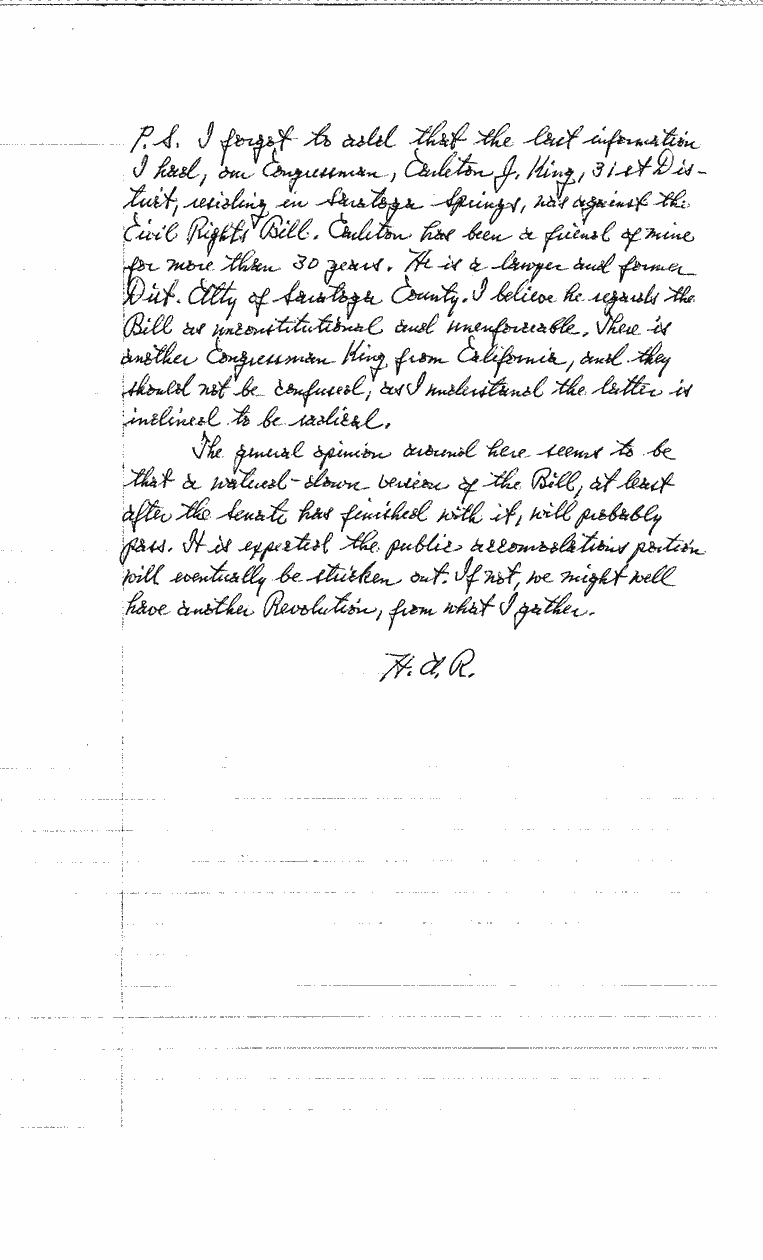 P.S. I forgot to add that the last information
I had, our Congressman, Carleton J. King, 31st Dis-
trict, residing in Saratoga Springs, was against the
Civil Rights Bill. Carleton has been a friend of mine
for more than 30 years. He is a lawyer and former
Dist. Atty of Saratoga County. I believe he regards the
Bill as unconstitutional and unenforceable. There is
another Congressman King from California, and they
should not be confused, as I understand the latter is
inclined to be radical.
The general opinion around here seems to be
that a watered-down version of the Bill, at least
after the Senate has finished with it, will probably
pass. It is expected the public accomodations portion
will eventually be stricken out. If not, we might well
have another Revolution, from what I gather.
H. A. R.